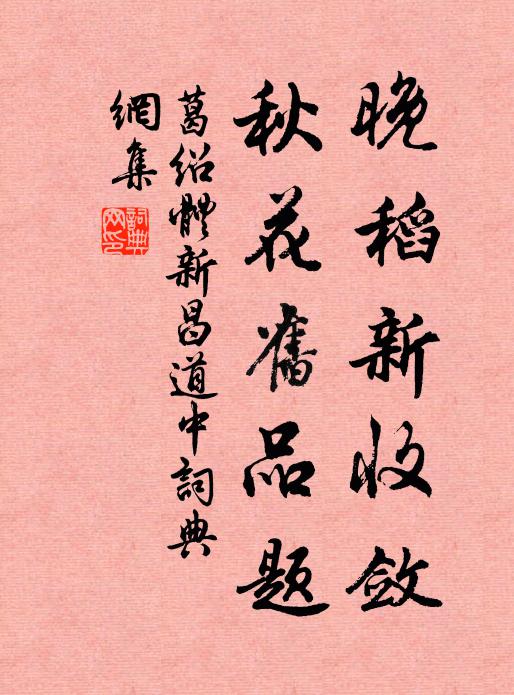 晚稻新收敛
秋花舊品题
葛绍體新昌道中詞典
網集
詞典網印